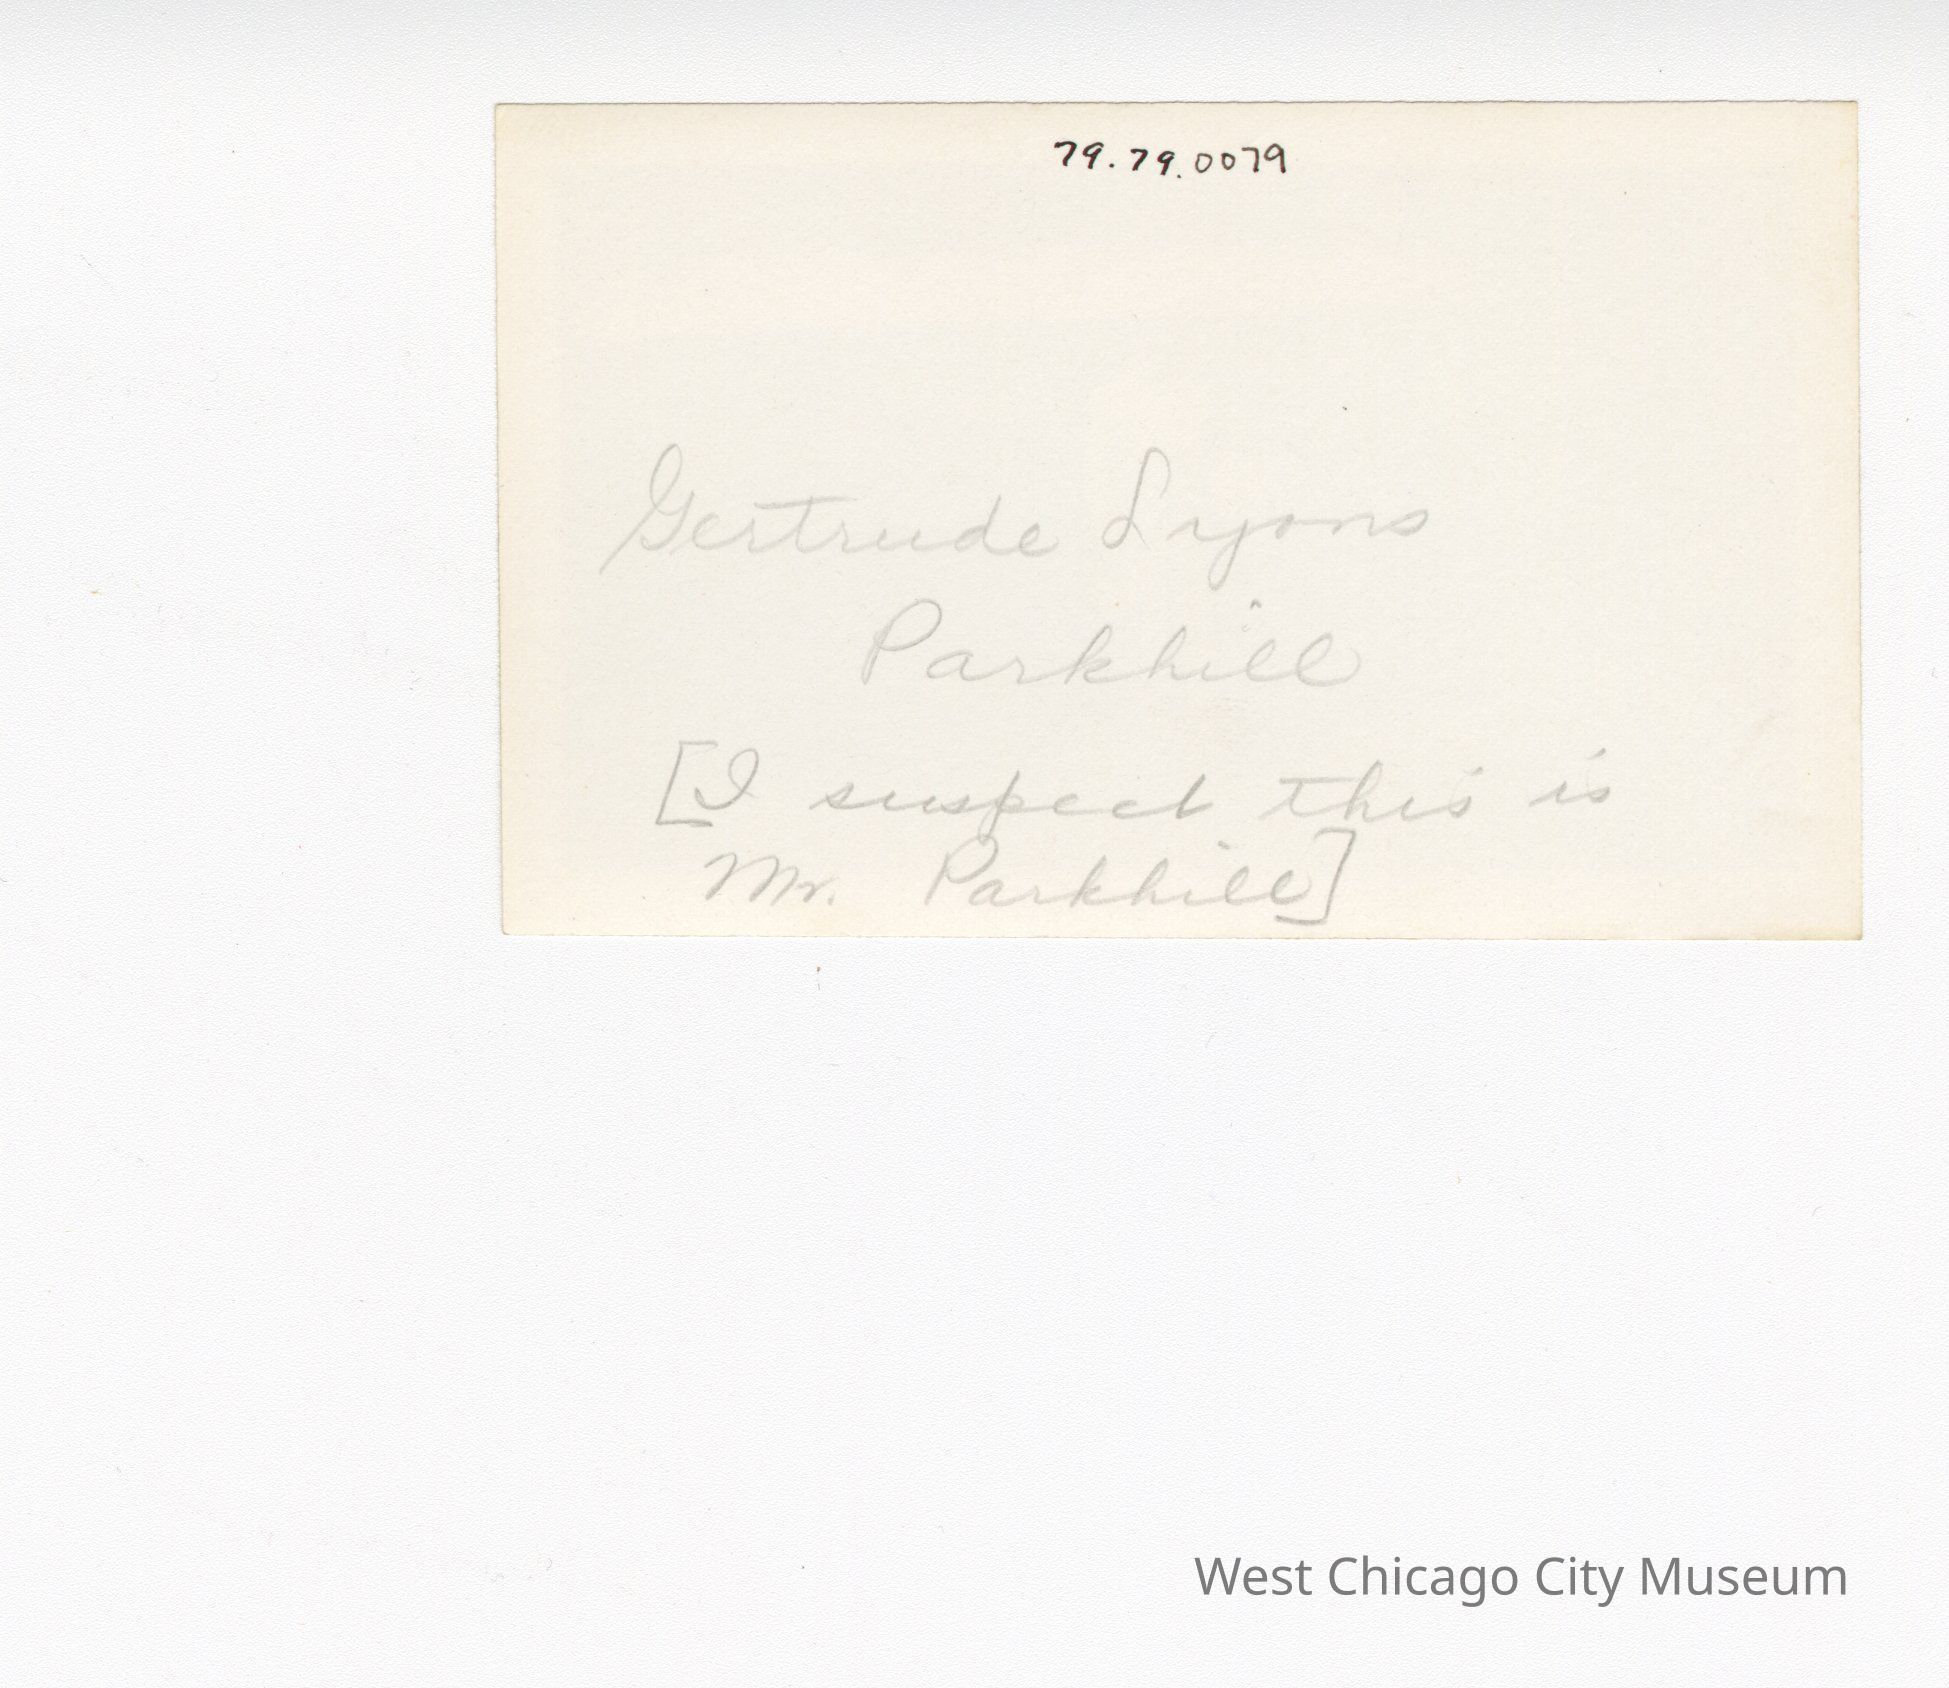 79.79.0079
Gertrude Lyons
Parkhill
[I suspect this is
Mr. Parkhill]
West Chicago City Museum